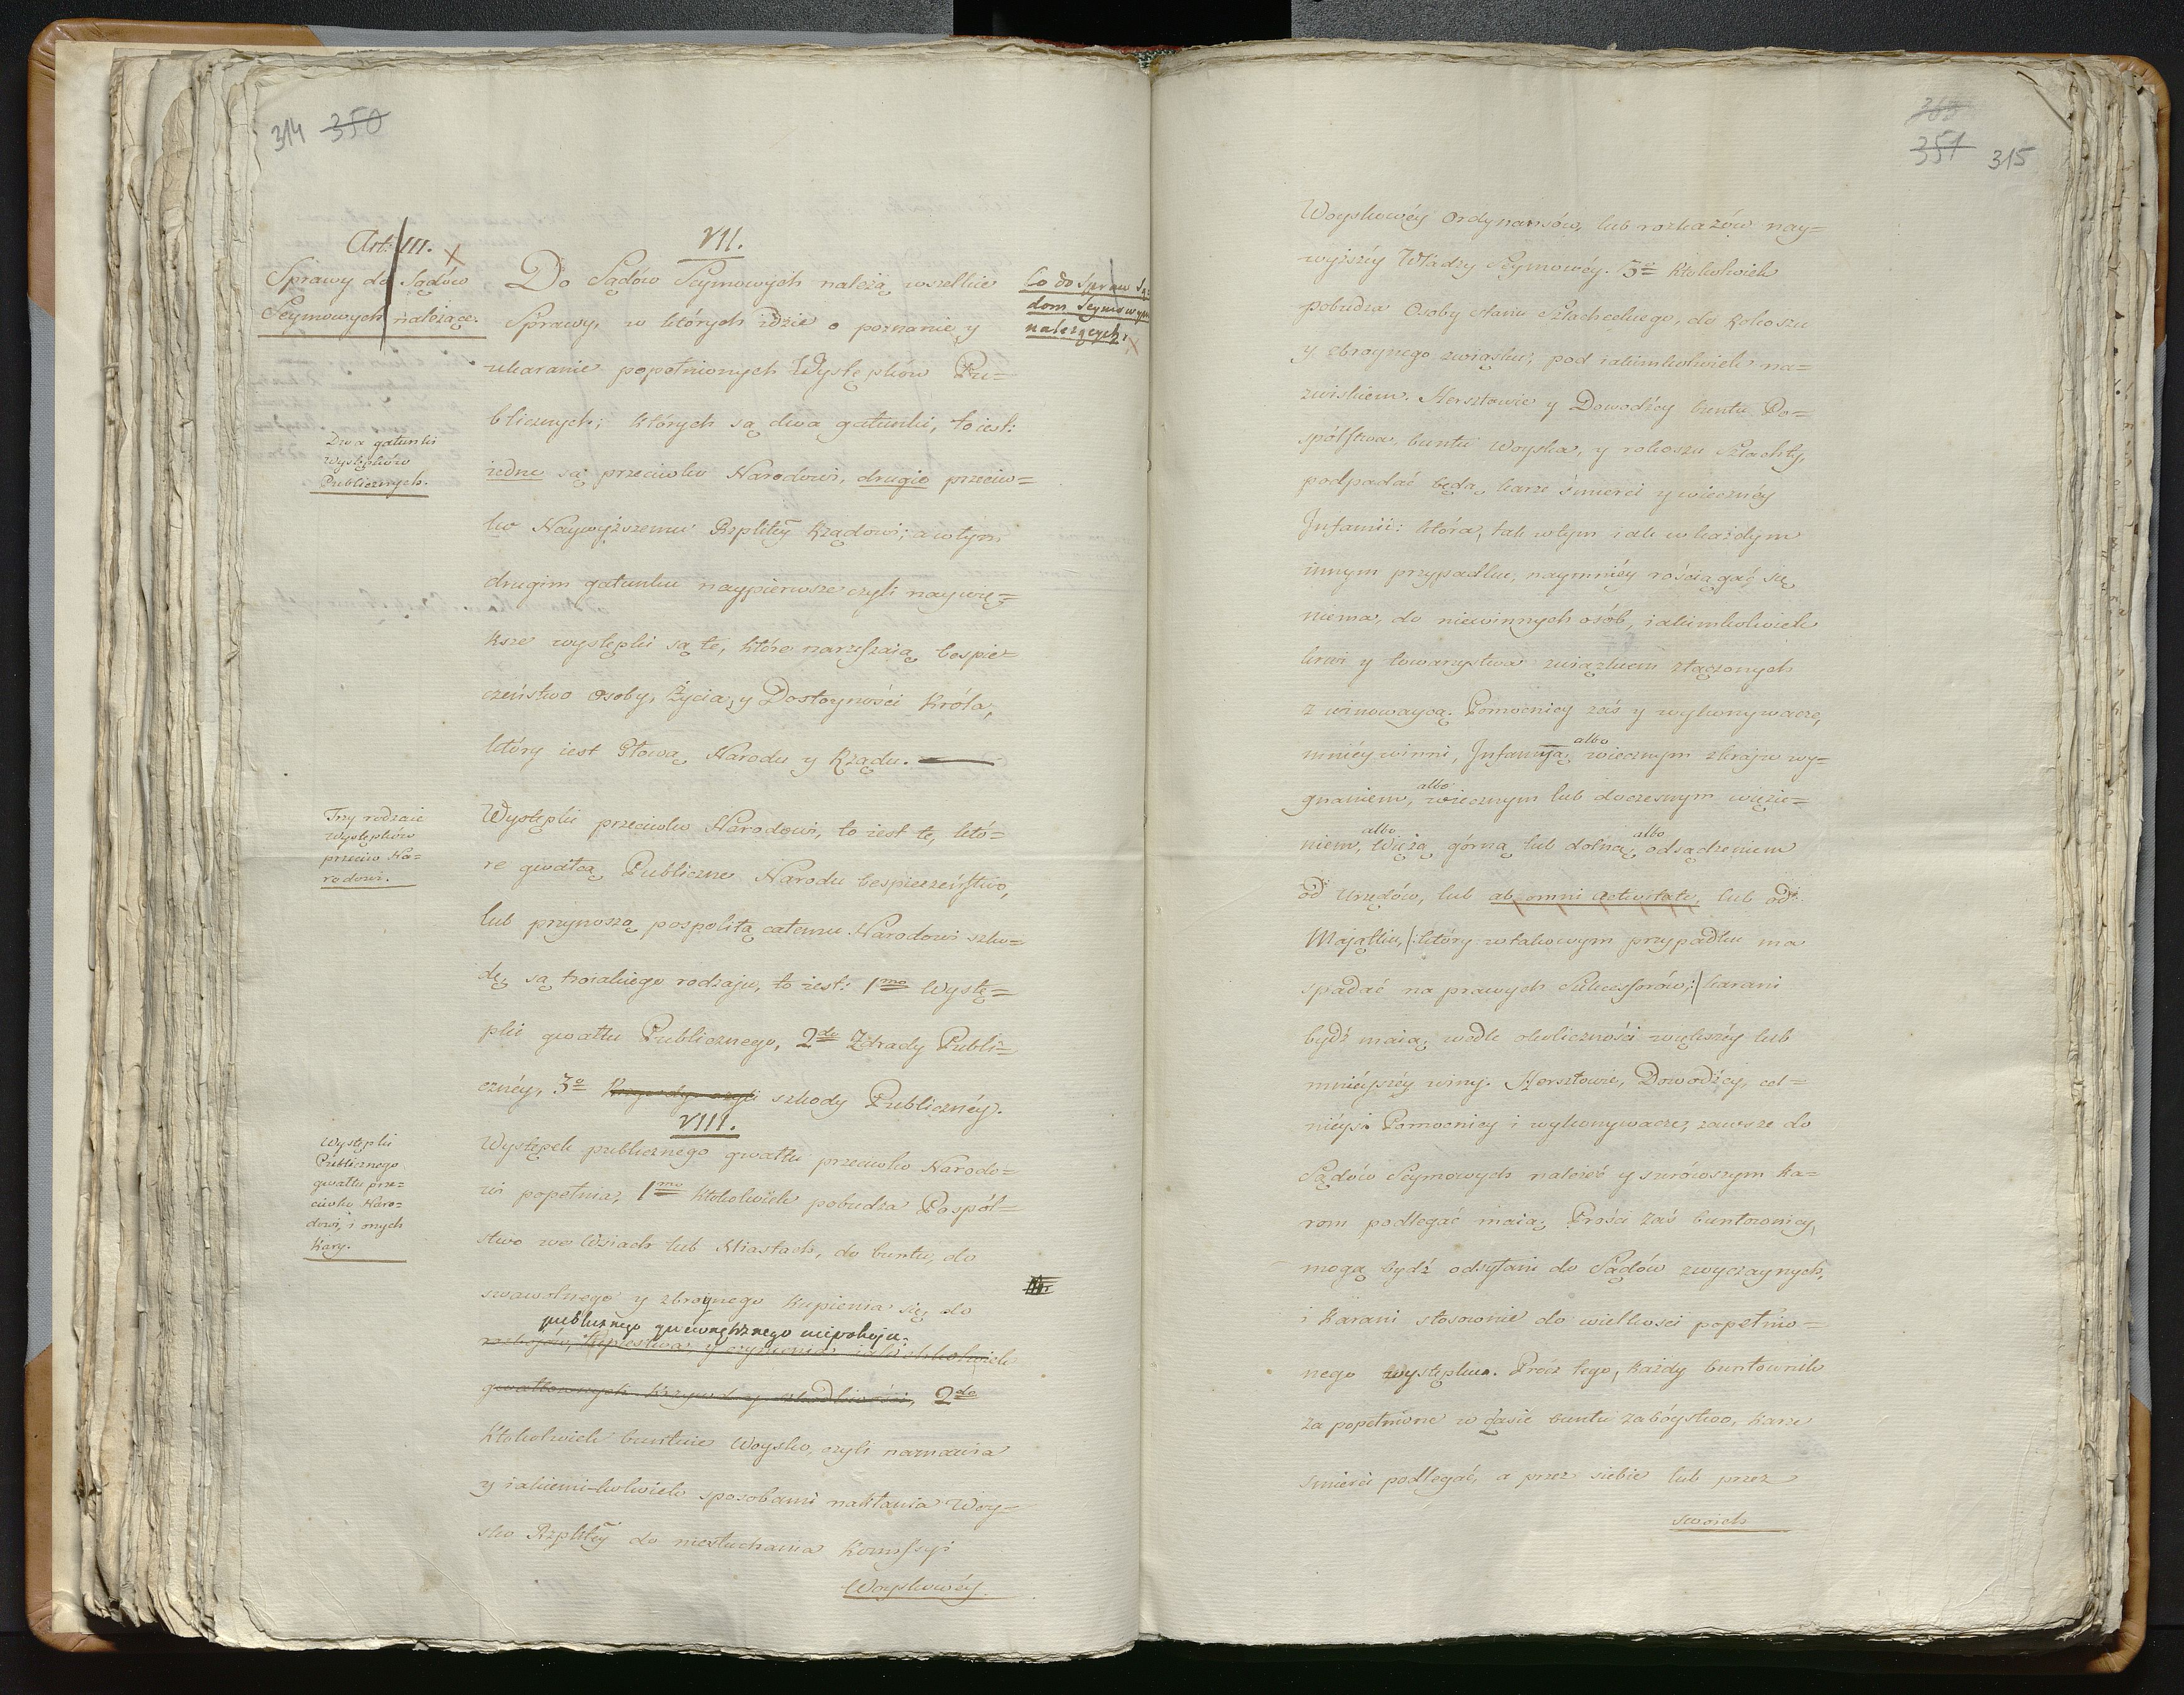 314 350
Art: III.
Sprawy do Sądów
Seymowych należące.
VII.
Do Sądów Seymowych należą wszelkie
Sprawy, w których idzie o poznanie y
ukaranie popełnionych Występków Pu=
blicznych; których są dwa gatunki, to iest:
iedne są przeciwko Narodowi, drugie przeciw=
ko Naywyższemu Rzpltey Rządowi; a w tym
drugim gatunku naypierwsze czyli naywię=
ksze występki są te, które naruszaią bespie=
czeństwo Osoby, Życia, y Dostoyności Króla,
który iest Głową Narodu y Rządu.
Co do Spraw Są=
dom Seymowym
należących,
Dwa gatunki
Występków
Publicznych.
Trzy rodzaie
Występków
przeciw Na=
rodowi.
Występki przeciwko Narodowi, to iest te, któ=
re gwałcą Publiczne Narodu bespieczeństwo,
lub przynoszą pospolitą całemu Narodowi szko=
dę, są troiakiego rodzaju, to iest: 1mo Wystę=
pki gwałtu Publicznego, 2do Zdrady Publi=
cznéy, 3o Krzywdy czyli szkody Publicznéy.
VIII.
Występki
Publicznego
gwałtu prze=
ciwko Naro=
dowi, i onych
Kary.
Występek publicznego gwałtu przeciwko Narodo=
wi popełnia, 1mo Ktokolwiek pobudza Pospól=
stwo we Wsiach lub Miastach, do buntu, do
swawolnego y zbroynego kupienia się, do
publicznego y wewnętrznego niepokoju.
gwałtownych Krzywd y szkodliwości, 2do
Ktokolwiek buntuie Woysko, czyli namawia
y iakiemi-kolwiek sposobami nakłania Woy=
sko Rzpltey do niesłuchania Komissyi
Woyskowéy
360
351 315
Woyskowéy Ordynansów, lub rozkazów nay=
wyższéy Władzy Seymowéy. 3o Ktokolwiek
pobudza Osoby stanu Szlacheckiego, do Rokoszu
y zbroynego związku, pod iakimkolwiek na=
zwiskiem. Hersztowie y Dowodźcy buntu Po=
spólstwa, buntu Woyska, y rokoszu Szlachty,
podpadać będą karze śmierci y wiecznéy
Infamii: która, tak w tym iak w każdym
innym przypadku, naymniéy rościągać się
niema, do niewinnych osób, iakimkolwiek
krwi y towarzystwa związkiem złączonych
z winowaycą. Pomocnicy zaś y wykonywacze,
mniéy winni, Infamyą, albo wiecznym z kraju wy=
gnaniem, albo wiecznym lub doczesnym więzie=
niem, albo Wieżą górną lub dolną, albo odsądzeniem
od Urzędów, lub ab omni activitate, lub od
Majątku, /:który w takowym przypadku ma
spadać na prawych Sukcessorów,:/ karani
bydź maią, wedle okoliczności większéy lub
mniéyszéy winy. Hersztowie, Dowodźcy, cel=
niéysi Pomocnicy i wykonywacze, zawsze do
Sądów Seymowych należeć y surowszym ka=
rom podlegać maią. Prości zaś buntownicy,
mogą bydź odsyłani do Sądów zwyczaynych,
i Karani stosownie do wielkości popełnio=
nego występku. Procz tego, każdy buntownik
za popełnione w czasie buntu zabóystwo, karze
śmierci podlegać, a przez siebie lub przez
swoich